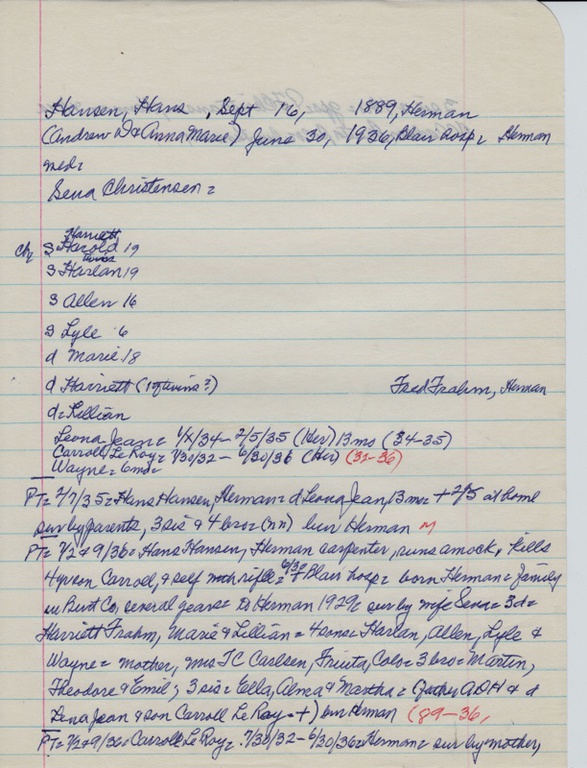 Hansen, Hans , Sept 16, 1889, Herman
(Andrew D & Anna Marie) June 30, 1936, Blair hosp = Herman
med =
Sena Christensen =
Harriett
chy s Harold 19
twins
s Harlan 19
s Allen 16
s Lyle 6
d Marie 18
d Harriett (1 of twins?) Fred Frahm, Herman
d = Lillian
Leona Jean = 1/x/34 - 2/5/35 (Her) 13 mo (34-35)
Carroll Le Roy = 7/30/32 - 6/30/36 (Her) (32-36)
Wayne = 6mo =
PT = 2/7/35 = Hans Hansen, Herman = d Leona Jean, 13 mo = + 2/5 at home
sur by parents, 3 sis & 4 bro = (nn) bur Herman M
PT = 7/2 & 9/36 = Hans Hansen, Herman carpenter, runs amock, kills
4 yr son Carroll, & self with rifle = 6/30 + Blair hosp = born Herman = family
in Burt Co, several years = to Herman 1929 = sur by wife Sena = 3d =
Harriett Frahm, Marie & Lillian = 4 sons = Harlan, Allen, Lyle &
Wayne = mother, Mrs TC Carlsen, Fruita, Colo = 3 bro = Martin,
Theodore & Emil; 3 sis = Ella, Alma & Martha = (father ADH & d
Lena Jean & son Carroll Le Roy - +) bur Herman (89-36,
PT = 7/2 & 9/36 = Carroll Le Roy = 7/30/32 - 6/30/36 = Herman = sur by mother,